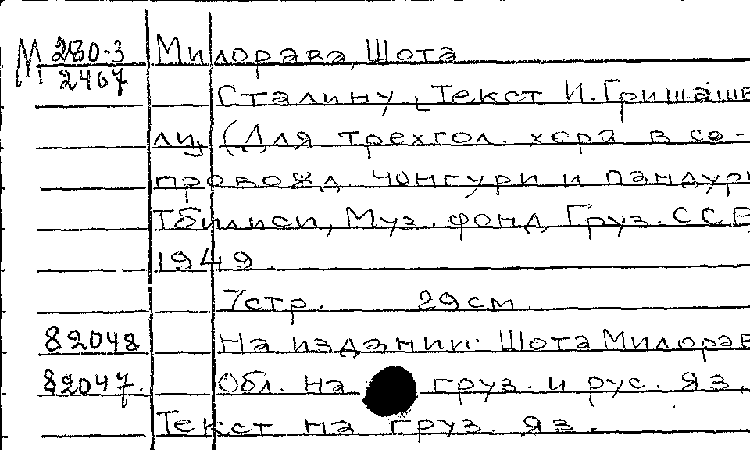 М 280-3 Милорава, Шота
2467
Сталину, [Текст И. Гришаше
ли, (Для трехгол. хора в со-
провожд. чонгури и пандури
Тбилиси, Муз. фонд Груз. ССР,
1949.
7 стр. 29 см
82048 На издании: Шота Милорав
82047. Обл. на груз. и рус. яз.
Текст на груз. яз.